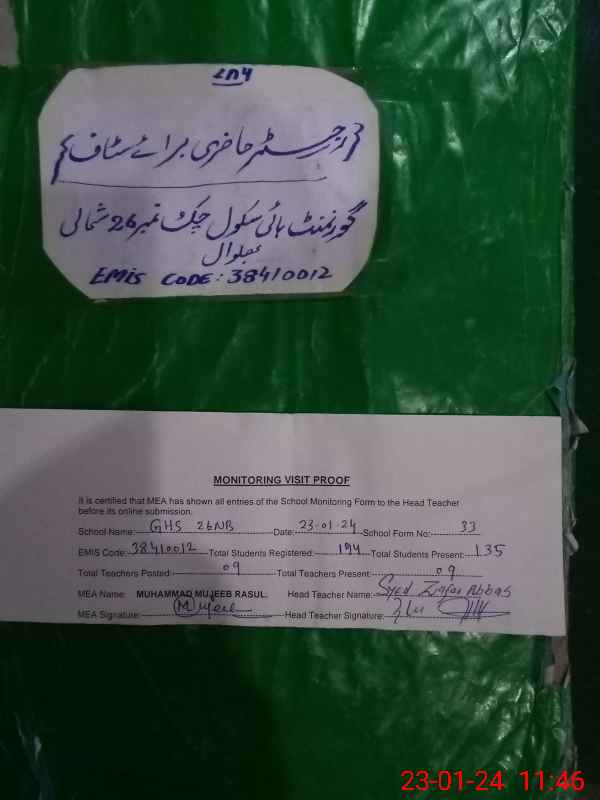 رجسٹر حاضری برائے سٹاف
گورنمنٹ ہائی سکول چک نمبر 26 شمالی
بھلوال
EMIS CODE: 38410012
MONITORING VISIT PROOF
It is certified that MEA has shown all entries of the School Monitoring Form to the Head Teacher
before its online submission.
School Name: GHS 26NB Date: 23-01-24 School Form No: 33
EMIS Code: 38410012 Total Students Registered: 194 Total Students Present: 135
Total Teachers Posted: 09 Total Teachers Present: 09
MEA Name: MUHAMMAD MUJEEB RASUL. Head Teacher Name: Syed Abbas
MEA Signature: Mujeeb Head Teacher Signature:
23-01-24 11:46